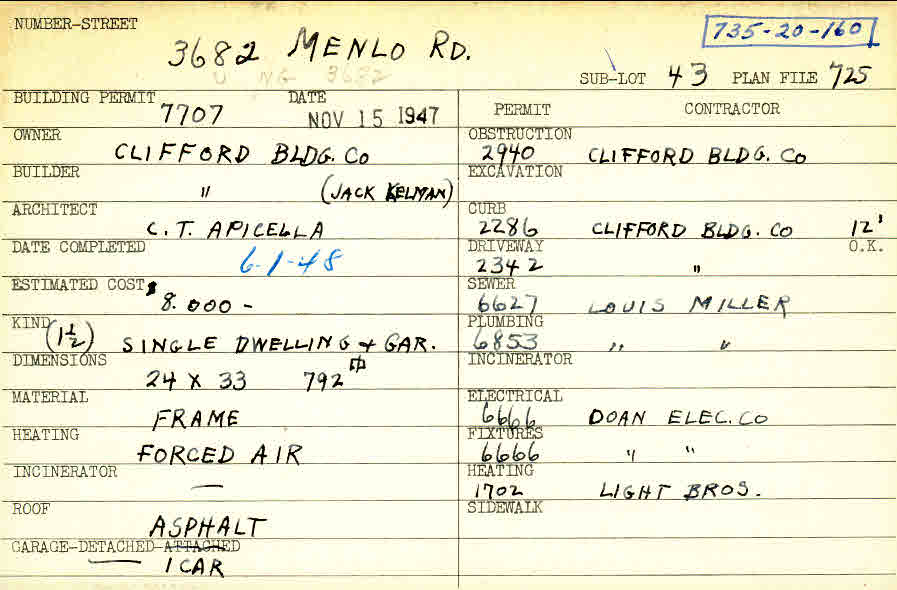 NUMBER-STREET
3682 MENLO RD.
735-20-160
SUB-LOT 43 PLAN FILE 725
BUILDING PERMIT DATE
7707 NOV 15 1947
OWNER
CLIFFORD BLDG. CO
BUILDER
" (JACK KELMAN)
ARCHITECT
C. T. APICELLA
DATE COMPLETED
6-1-48
ESTIMATED COST $
8.000 -
KIND
(1½) SINGLE DWELLING + GAR.
DIMENSIONS
24 X 33 792
MATERIAL
FRAME
HEATING
FORCED AIR
INCINERATOR
—
ROOF
ASPHALT
GARAGE-DETACHED-ATTACHED
1 CAR
PERMIT CONTRACTOR
OBSTRUCTION
2940 CLIFFORD BLDG. CO
EXCAVATION
CURB
2286 CLIFFORD BLDG. CO 12'
DRIVEWAY O.K.
2342 "
SEWER
6627 LOUIS MILLER
PLUMBING
6853 " "
INCINERATOR
ELECTRICAL
6666 DOAN ELEC. CO
FIXTURES
6666 " "
HEATING
1702 LIGHT BROS.
SIDEWALK